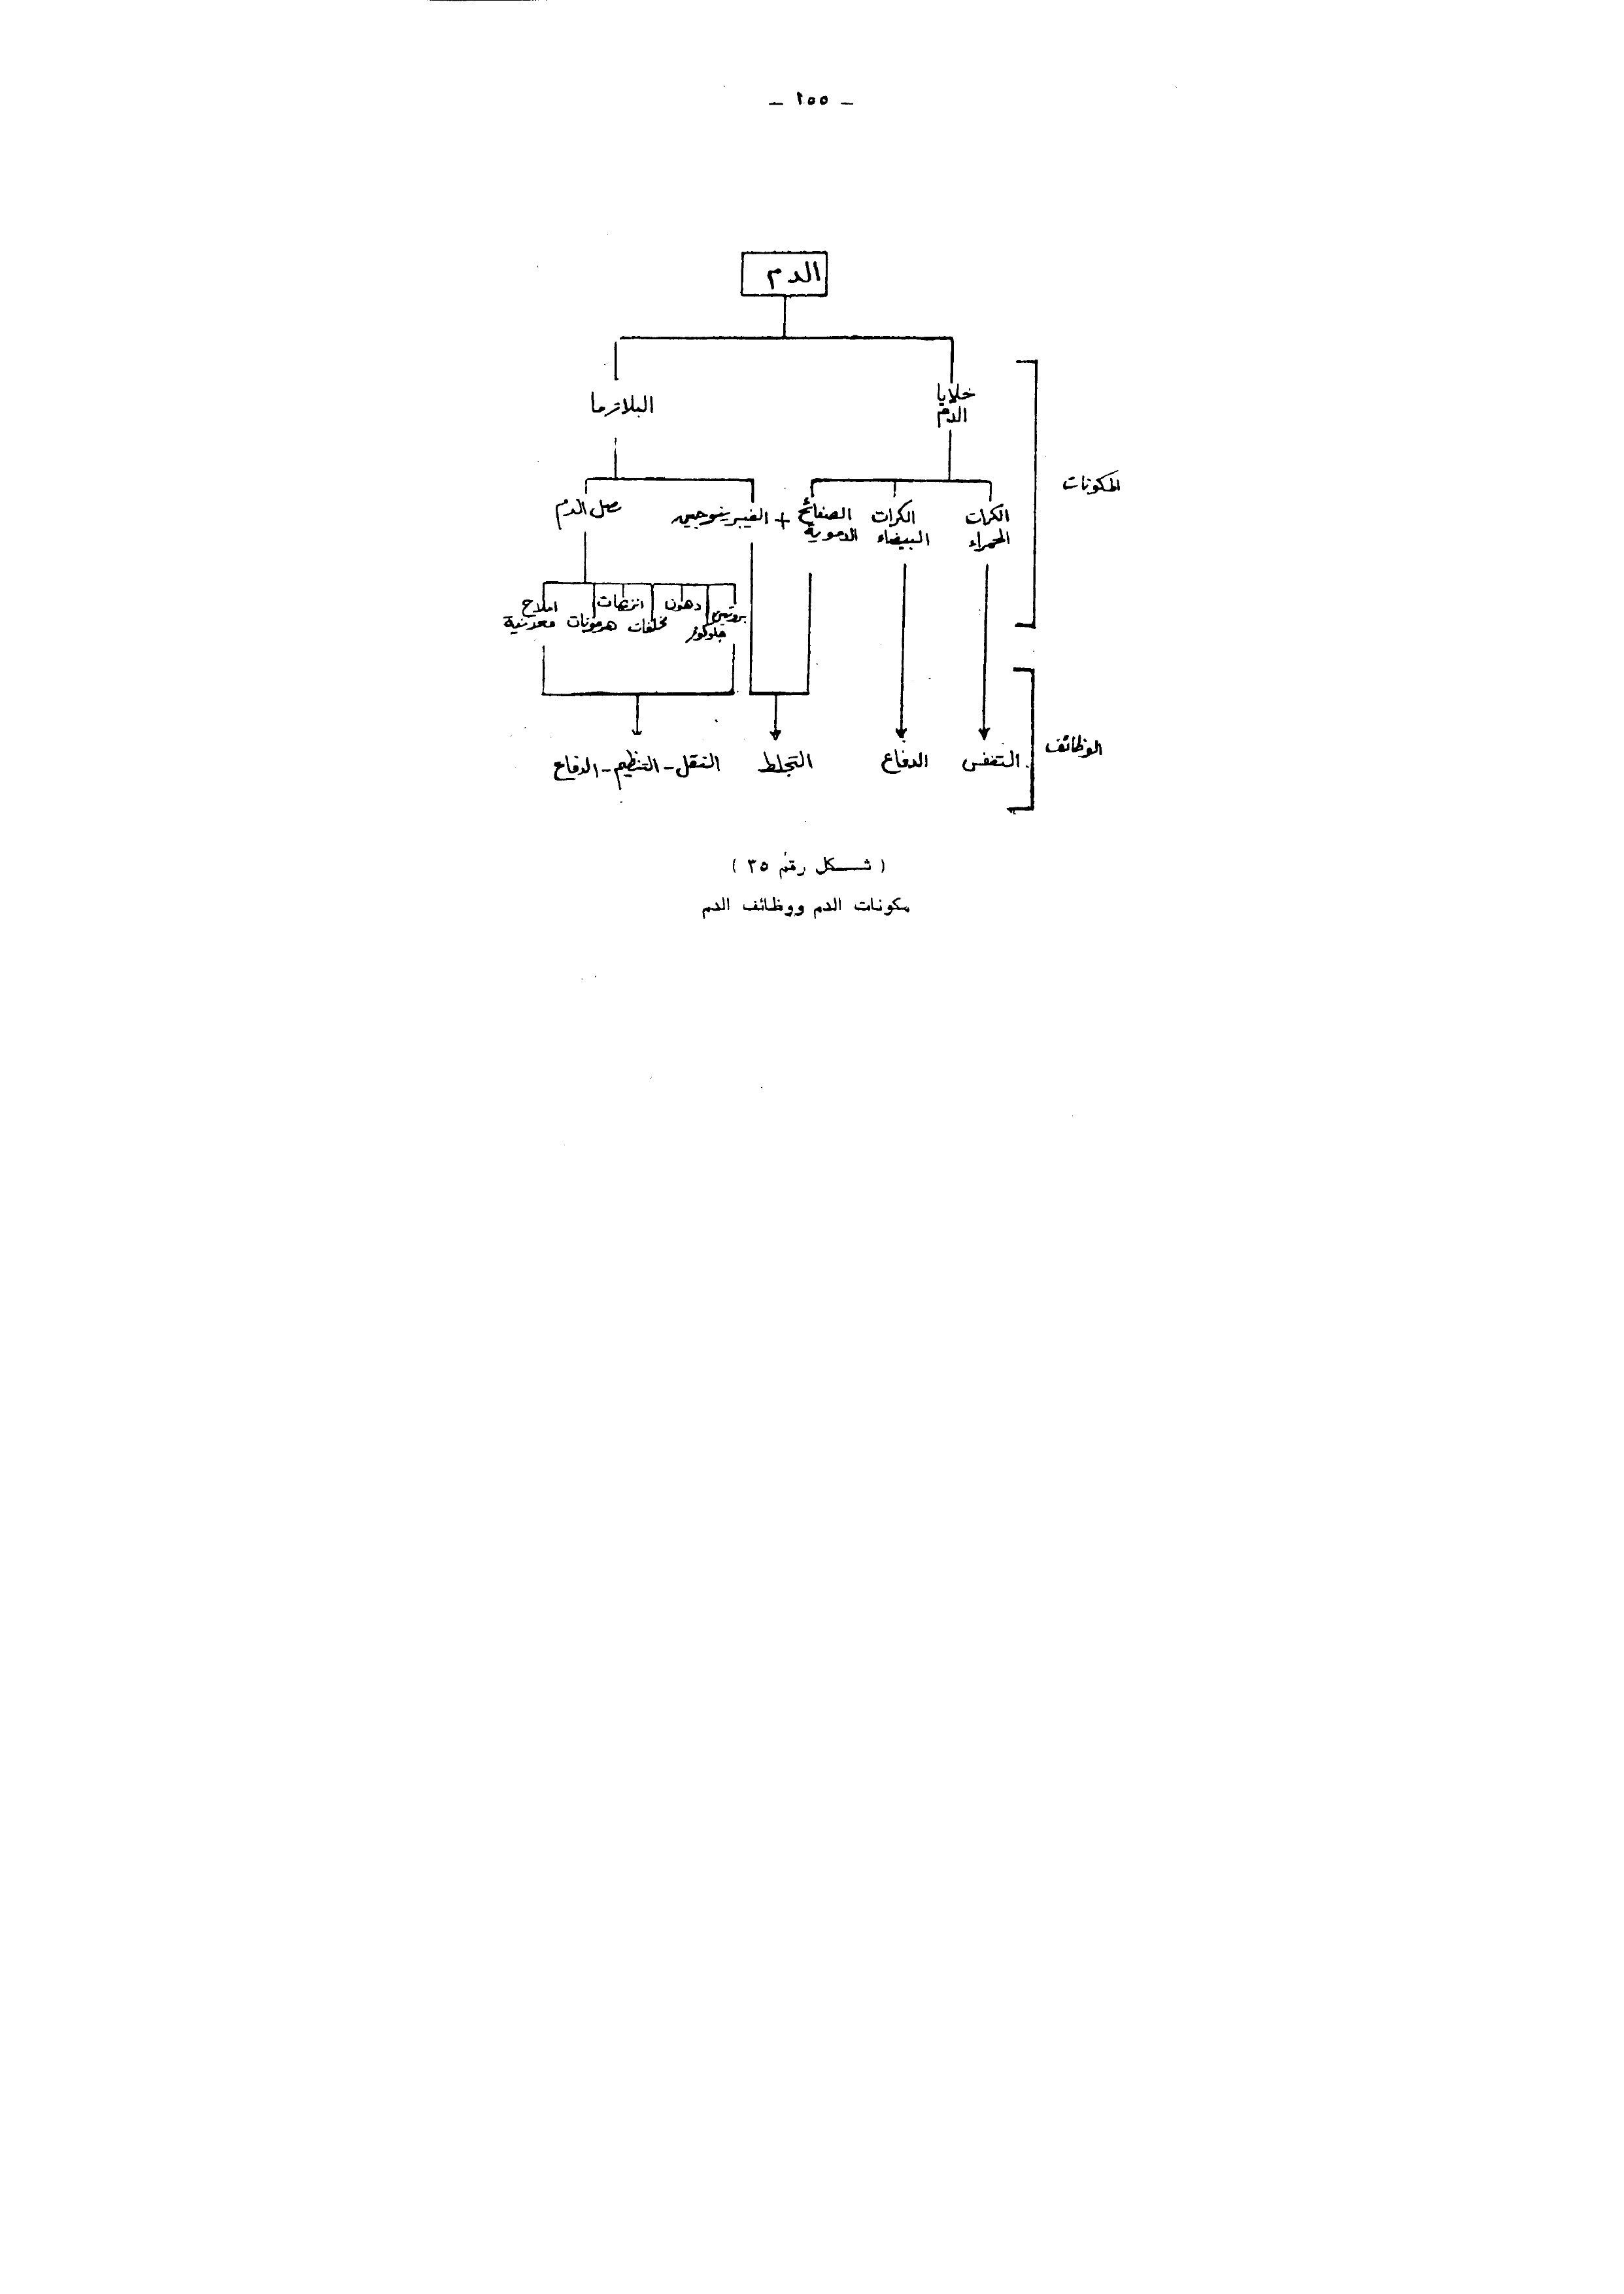 — ٢٥٥ —
الدم
خلايا
الدم
البلازما
المكونات
الكرات
الحمراء
الكرات
البيضاء
الصفائح
الدموية
+
الفيبرينوجين
مصل الدم
بروتين
جلوكوز
دهون
مخلفات
انزيمات
هرمونات
املاح
معدنية
الوظائف
التنفس
الدفاع
التجلط
النقل - التنظيم - الدفاع
( شكل رقم ٣٥ )
مكونات الدم ووظائف الدم